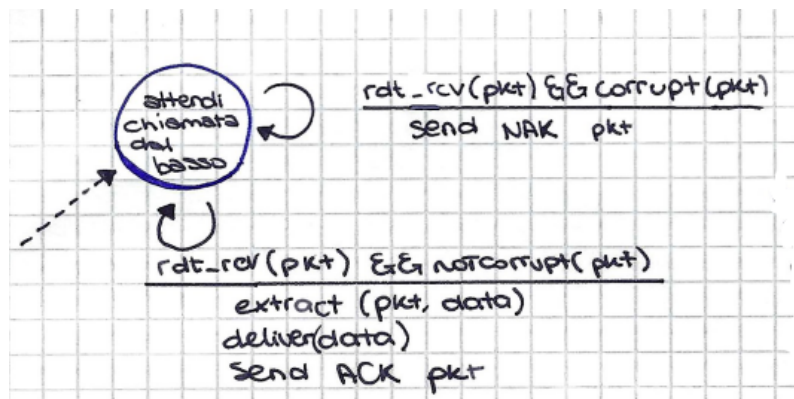 attendi
chiamata
dal
basso
rdt_rcv(pkt) && corrupt(pkt)
send NAK pkt
rdt_rcv(pkt) && notcorrupt(pkt)
extract (pkt, data)
deliver(data)
send ACK pkt